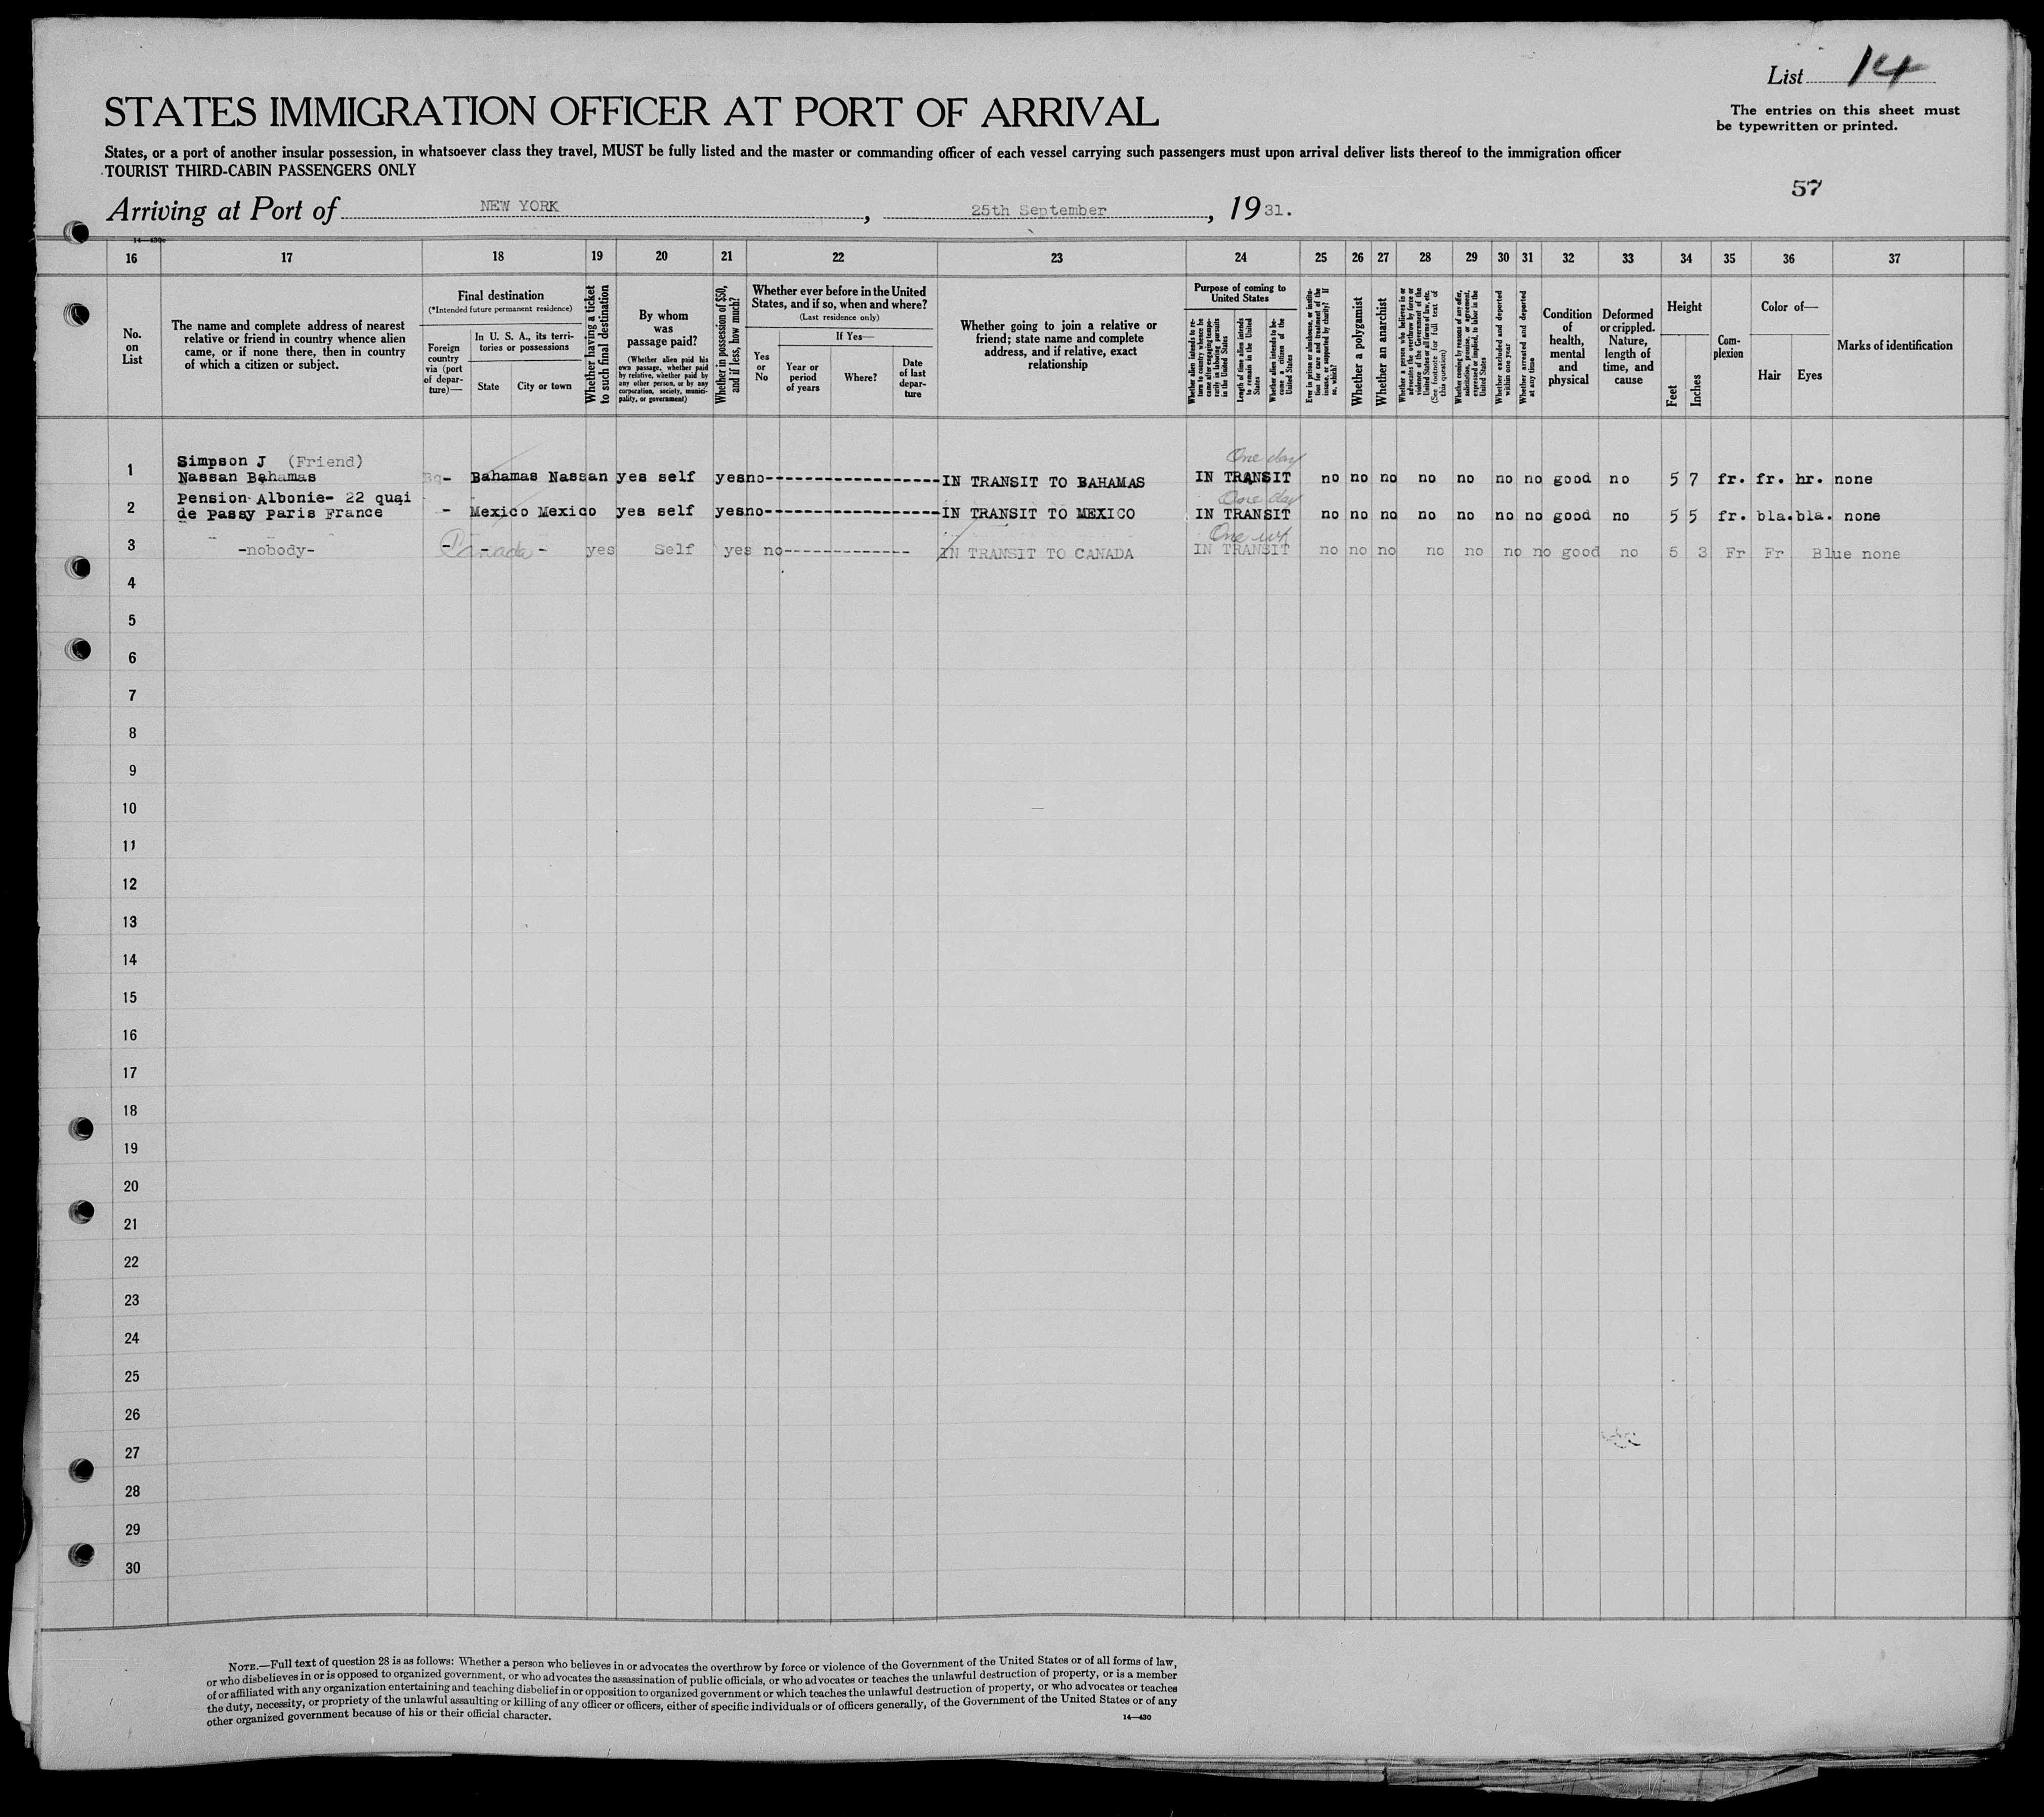 List 14
STATES IMMIGRATION OFFICER AT PORT OF ARRIVAL
The entries on this sheet must
be typewritten or printed.
States, or a port of another insular possession, in whatsoever class they travel, MUST be fully listed and the master or commanding officer of each vessel carrying such passengers must upon arrival deliver lists thereof to the immigration officer
TOURIST THIRD-CABIN PASSENGERS ONLY
57
Arriving at Port of NEW YORK, 25th September, 1931.
14—430
16 17 18 19 20 21 22 23 24 25 26 27 28 29 30 31 32 33 34 35 36 37
No. on List
The name and complete address of nearest
relative or friend in country whence alien
came, or if none there, then in country
of which a citizen or subject.
Final destination
(*Intended future permanent residence)
Foreign
country
via (port
of depar-
ture)—
In U. S. A., its terri-
tories or possessions
State City or town
Whether having a ticket
to such final destination
By whom
was
passage paid?
(Whether alien paid his
own passage, whether paid
by relative, whether paid by
any other person, or by any
corporation, society, munici-
pality, or government)
Whether in possession of $50,
and if less, how much?
Whether ever before in the United
States, and if so, when and where?
(Last residence only)
Yes
or
No
If Yes—
Year or
period
of years
Where?
Date
of last
depar-
ture
Whether going to join a relative or
friend; state name and complete
address, and if relative, exact
relationship
Purpose of coming to
United States
Whether alien intends to re-
turn to country whence he
came after engaging tempo-
rarily in laboring pursuits
in the United States
Length of time alien intends
to remain in the United
States
Whether alien intends to be-
come a citizen of the
United States
Ever in prison or almshouse, or institu-
tion for care and treatment of the
insane, or supported by charity? If
so, which?
Whether a polygamist
Whether an anarchist
Whether a person who believes in or
advocates the overthrow by force or
violence of the Government of the
United States or all forms of law, etc.
(See footnote for full text of
this question)
Whether coming by reason of any offer,
solicitation, promise, or agreement,
expressed or implied, to labor in the
United States
Whether excluded and deported
within one year
Whether arrested and deported
at any time
Condition
of
health,
mental
and
physical
Deformed
or crippled.
Nature,
length of
time, and
cause
Height
Feet Inches
Com-
plexion
Color of—
Hair Eyes
Marks of identification
Simpson J (Friend) One day
1 Nassan Bahamas - Bahamas Nassan yes self yes no------------------- IN TRANSIT TO BAHAMAS IN TRANSIT no no no no no no no good no 5 7 fr. fr. hr. none
Pension Albonie- 22 quai One day
2 de Passy Paris France - Mexico Mexico yes self yes no------------------- IN TRANSIT TO MEXICO IN TRANSIT no no no no no no no good no 5 5 fr. bla. bla. none
One
3 -nobody- - Canada - - yes Self yes no-------------- IN TRANSIT TO CANADA IN TRANSIT no no no no no no no good no 5 3 Fr Fr Blue none
4
5
6
7
8
9
10
11
12
13
14
15
16
17
18
19
20
21
22
23
24
25
26
27
28
29
30
NOTE.—Full text of question 28 is as follows: Whether a person who believes in or advocates the overthrow by force or violence of the Government of the United States or of all forms of law,
or who disbelieves in or is opposed to organized government, or who advocates the assassination of public officials, or who advocates or teaches the unlawful destruction of property, or is a member
of or affiliated with any organization entertaining and teaching disbelief in or opposition to organized government or which teaches the unlawful destruction of property, or who advocates or teaches
the duty, necessity, or propriety of the unlawful assaulting or killing of any officer or officers, either of specific individuals or of officers generally, of the Government of the United States or of any
other organized government because of his or their official character.
14—430